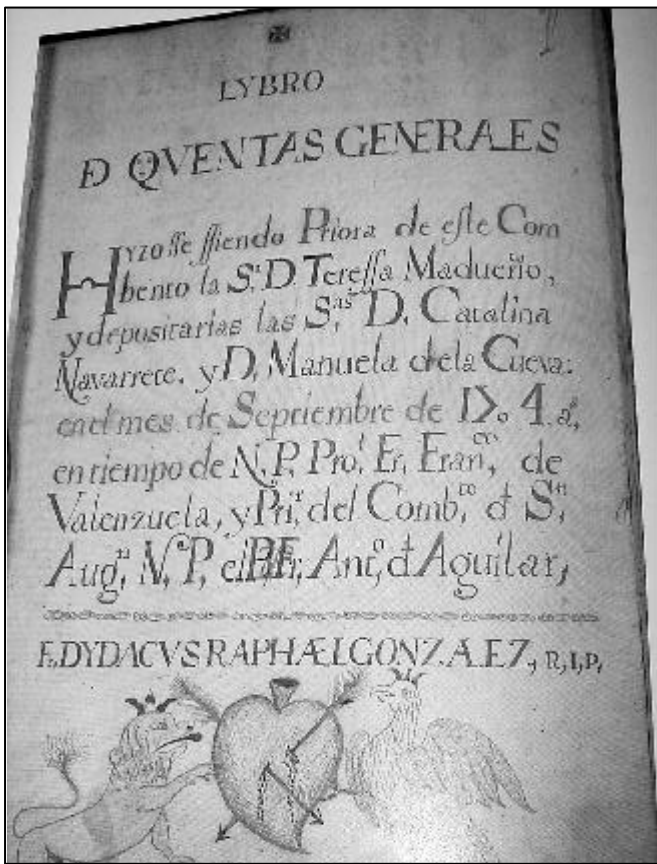 LYBRO
Đ QVENTAS GENERALES
Hyzosse ssiendo Priora de este Com
bento la S.ª D. Teressa Madueño,
y depositarias las S.as D. Catalina
Navarrete. y D. Manuela de la Cueva:
en el mes de Septiembre de
en tiempo de N. P. Pro.l Fr. Fran.co, de
Valenzuela, y Pri.r del Comb.to đ S.n
Aug.n N. P. el Fr. Ant.o đ Aguilar,
Fr. DYDACVS RAPHÆL GONZALEZ, R, I, P,